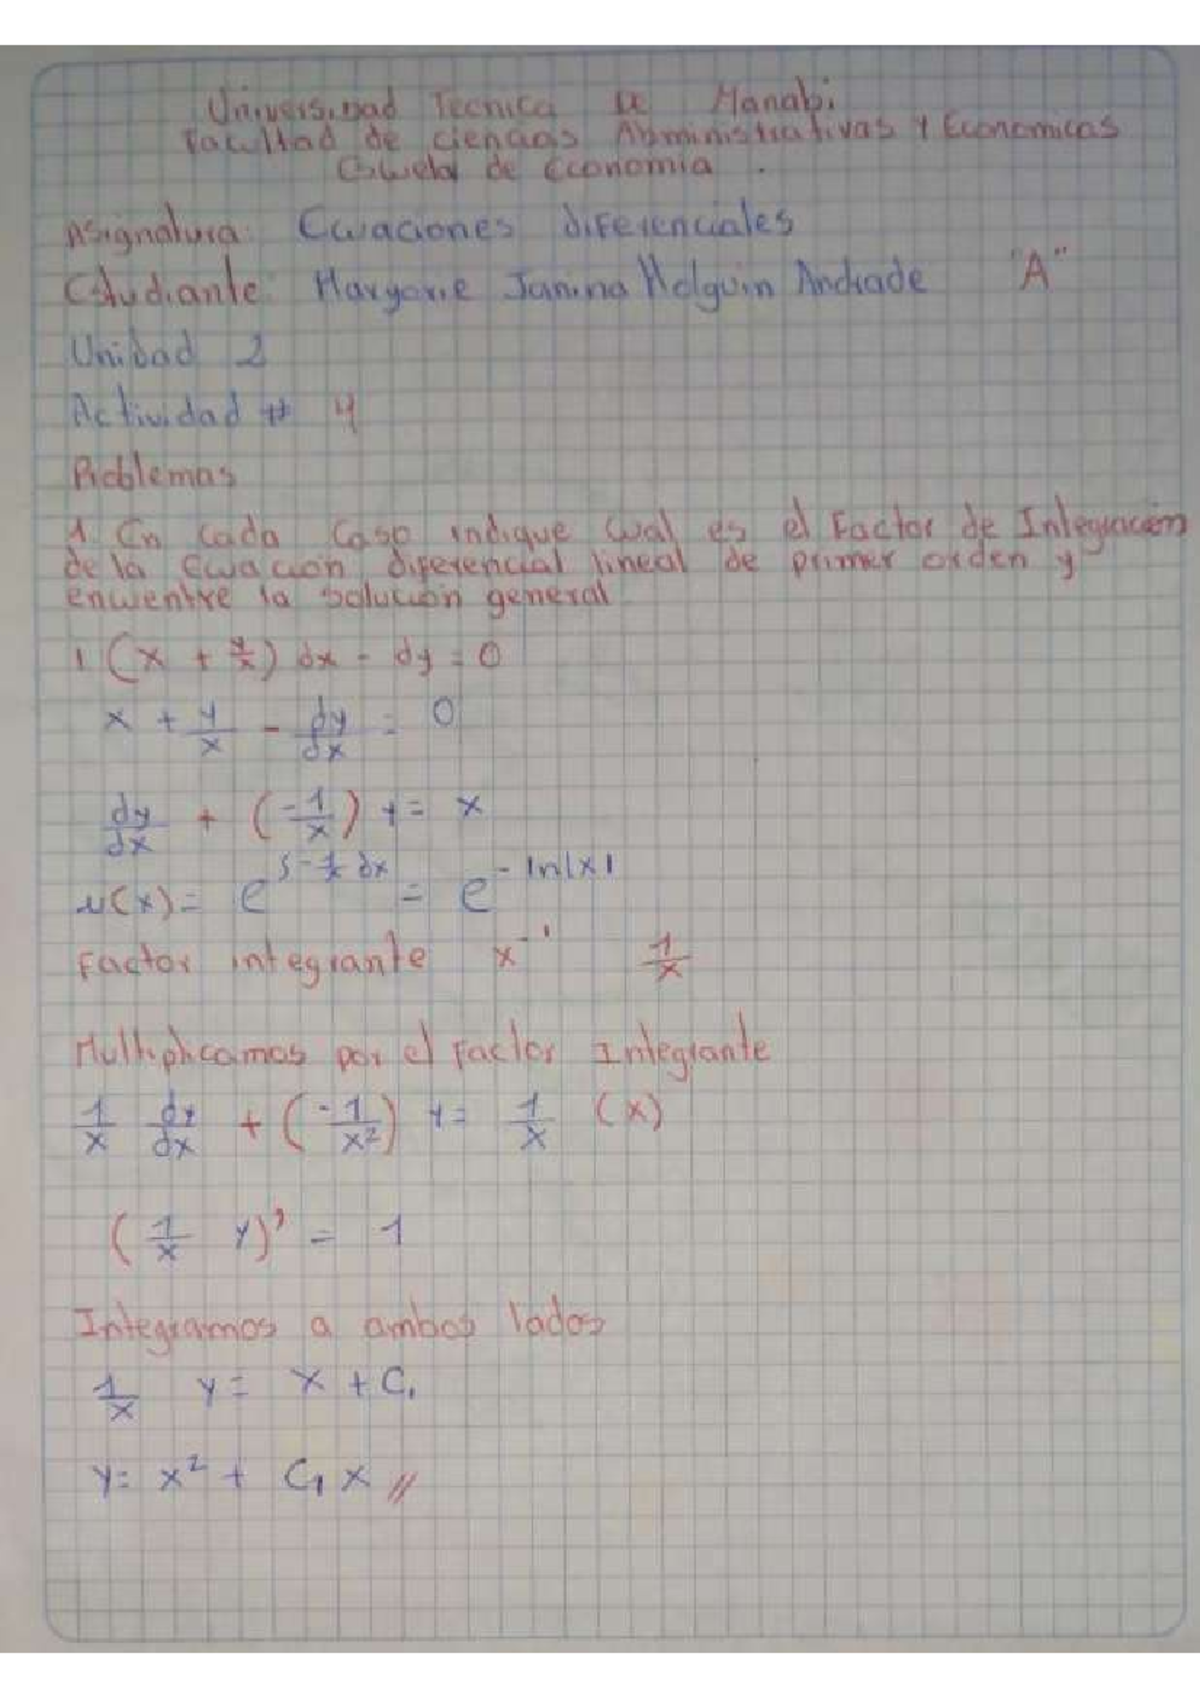 Universidad Tecnica De Manabi
Facultad de ciencias Administrativas y Economicas
Escuela de Economia.
Asignatura: Ecuaciones diferenciales
Estudiante: Maryorie Janina Holguin Andrade "A"
Unidad 2
Actividad # 4
Problemas
1 En cada caso indique cual es el Factor de Integración
de la Ecuación diferencial lineal de primer orden y
encuentre la solución general
1 (x + y/x) dx - dy = 0
x + y/x - dy/dx = 0
dy/dx + (-1/x) y = x
u(x) = e^∫-1/x dx = e^-ln|x|
Factor integrante x^-1 1/x
Multiplicamos por el Factor Integrante
1/x dy/dx + (-1/x²) y = 1/x (x)
(1/x y)' = 1
Integramos a ambos lados
1/x y = x + C₁
y = x² + C₁ x //